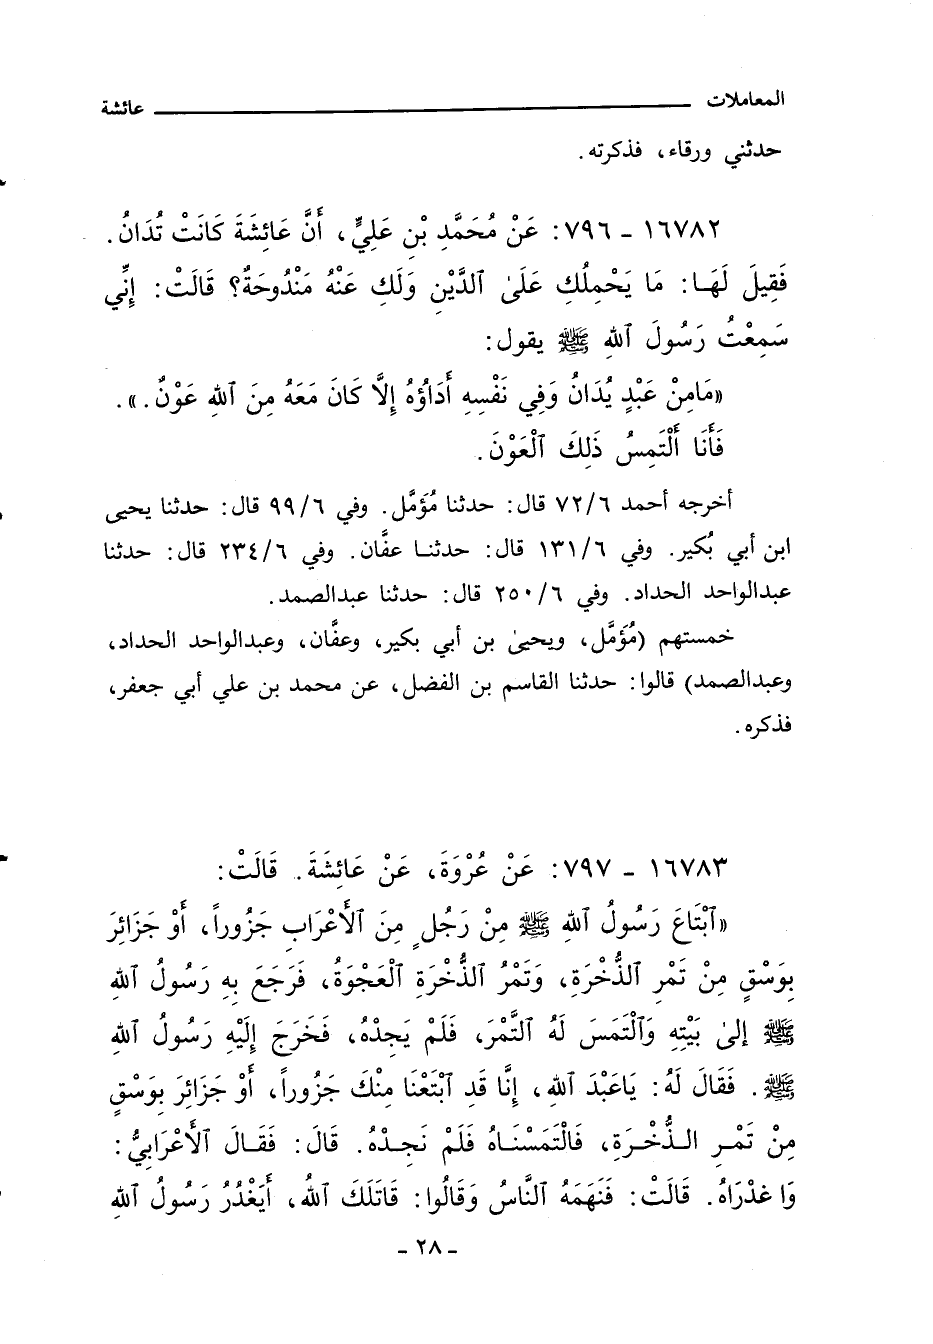 المعاملات ــــــــــــــــ عائشة
حدثني ورقاء، فذكرته.
١٦٧٨٢ - ٧٩٦: عَنْ مُحَمَّدِ بْنِ عَلِيٍّ، أَنَّ عَائِشَةَ كَانَتْ تُدَانُ.
فَقِيلَ لَهَا: مَا يَحْمِلُكِ عَلَىٰ ٱلدَّيْنِ وَلَكِ عَنْهُ مَنْدُوحَةٌ؟ قَالَتْ: إِنِّي
سَمِعْتُ رَسُولَ ٱللهِ ﷺ يقول:
«مَامِنْ عَبْدٍ يُدَانُ وَفِي نَفْسِهِ أَدَاؤُهُ إِلَّا كَانَ مَعَهُ مِنَ ٱللهِ عَوْنٌ.».
فَأَنَا أَلْتَمِسُ ذَلِكَ ٱلْعَوْنَ.
أخرجه أحمد ٧٢/٦ قال: حدثنا مُؤَمَّل. وفي ٩٩/٦ قال: حدثنا يحيى
ابن أبي بُكير. وفي ١٣١/٦ قال: حدثنا عفَّان. وفي ٢٣٤/٦ قال: حدثنا
عبدالواحد الحداد. وفي ٢٥٠/٦ قال: حدثنا عبدالصمد.
خمستهم (مُؤَمَّل، ويحيىٰ بن أبي بكير، وعفَّان، وعبدالواحد الحداد،
وعبدالصمد) قالوا: حدثنا القاسم بن الفضل، عن محمد بن علي أبي جعفر،
فذكره.
١٦٧٨٣ - ٧٩٧: عَنْ عُرْوَةَ، عَنْ عَائِشَةَ. قَالَتْ:
«ٱبْتَاعَ رَسُولُ ٱللهِ ﷺ مِنْ رَجُلٍ مِنَ ٱلْأَعْرَابِ جَزُوراً، أَوْ جَزَائِرَ
بِوَسْقٍ مِنْ تَمْرِ ٱلذُّخْرَةِ، وَتَمْرُ ٱلذُّخْرَةِ ٱلْعَجْوَةُ، فَرَجَعَ بِهِ رَسُولُ ٱللهِ
ﷺ إِلىٰ بَيْتِهِ وَٱلْتَمَسَ لَهُ ٱلتَّمْرَ، فَلَمْ يَجِدْهُ، فَخَرَجَ إِلَيْهِ رَسُولُ ٱللهِ
ﷺ. فَقَالَ لَهُ: يَاعَبْدَ ٱللهِ، إِنَّا قَدِ ٱبْتَعْنَا مِنْكَ جَزُوراً، أَوْ جَزَائِرَ بِوَسْقٍ
مِنْ تَمْرِ ٱلذُّخْرَةِ، فَالْتَمَسْنَاهُ فَلَمْ نَجِدْهُ. قَالَ: فَقَالَ ٱلْأَعْرَابِيُّ:
وَا غَدْرَاهُ. قَالَتْ: فَنَهَمَهُ ٱلنَّاسُ وَقَالُوا: قَاتَلَكَ ٱللهُ، أَيَغْدُرُ رَسُولُ ٱللهِ
- ٢٨ -